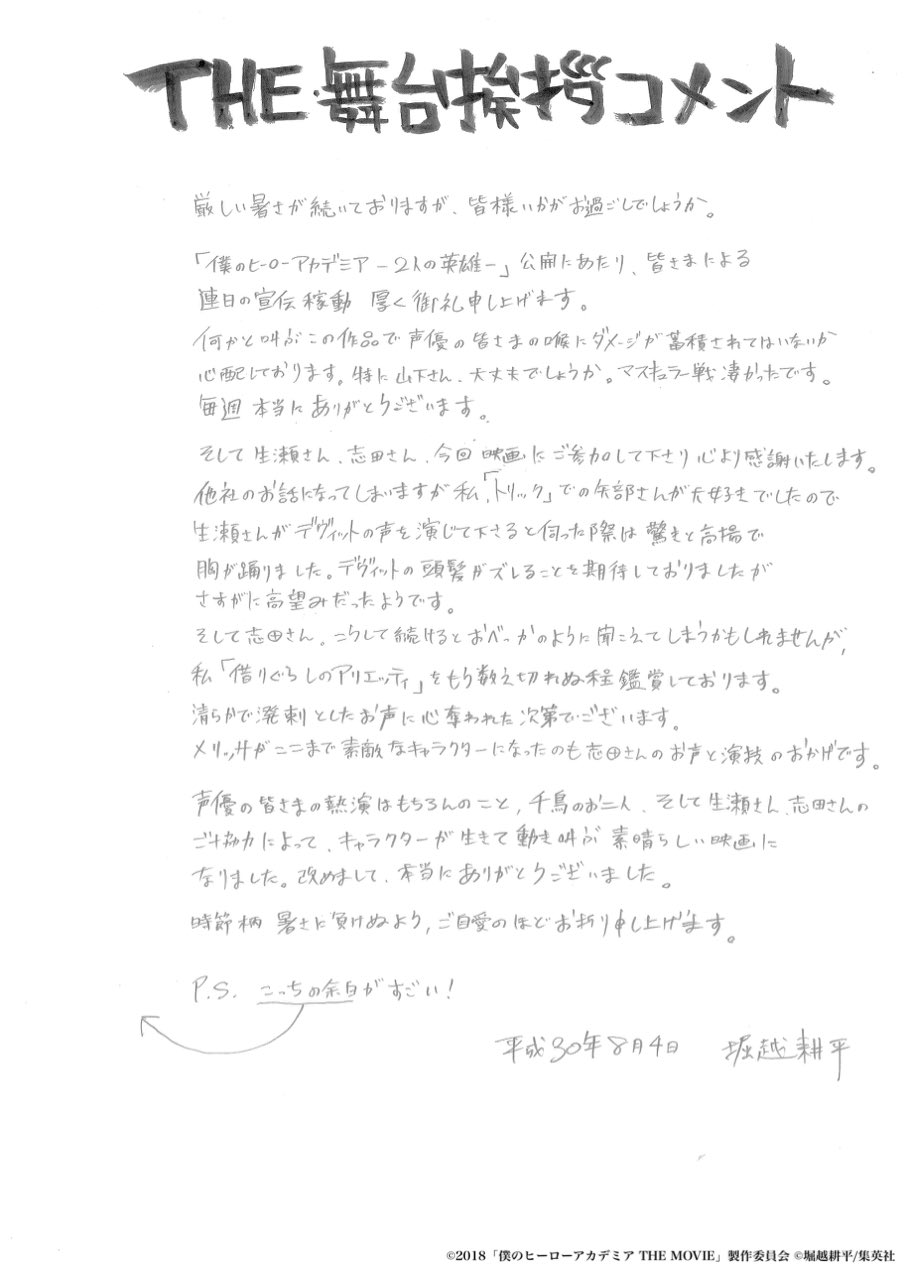 THE・舞台挨拶コメント
厳しい暑さが続いておりますが、皆様いかがお過ごしでしょうか。
「僕のヒーローアカデミア －2人の英雄－」公開にあたり、皆さまによる
連日の宣伝稼動 厚く御礼申し上げます。
何かと叫ぶこの作品で声優の皆さまの喉にダメージが蓄積されてはいないか
心配しております。特に山下さん、大丈夫でしょうか。マスキュラー戦凄かったです。
毎週 本当にありがとうございます。
そして生瀬さん、志田さん、今回 映画にご参加して下さり心より感謝いたします。
他社のお話になってしまいますが私、「トリック」での矢部さんが大好きでしたので
生瀬さんがデヴィットの声を演じて下さると伺った際は驚きと高揚で
胸が踊りました。デヴィットの頭髪がズレることを期待しておりましたが
さすがに高望みだったようです。
そして志田さん。こうして続けるとおべっかのように聞こえてしまうかもしれませんが、
私「借りぐらしのアリエッティ」をもう数え切れぬ程鑑賞しております。
清らかで溌剌としたお声に心奪われた次第でございます。
メリッサがここまで素敵なキャラクターになったのも志田さんのお声と演技のおかげです。
声優の皆さまの熱演はもちろんのこと、千鳥のお二人、そして生瀬さん、志田さんの
ご協力によって、キャラクターが生きて動き叫ぶ 素晴らしい映画に
なりました。改めまして、本当にありがとうございました。
時節柄 暑さに負けぬよう、ご自愛のほどお祈り申し上げます。
P.S. こっちの余白がすごい！
平成30年8月4日 堀越耕平
©2018「僕のヒーローアカデミア THE MOVIE」製作委員会 ©堀越耕平/集英社